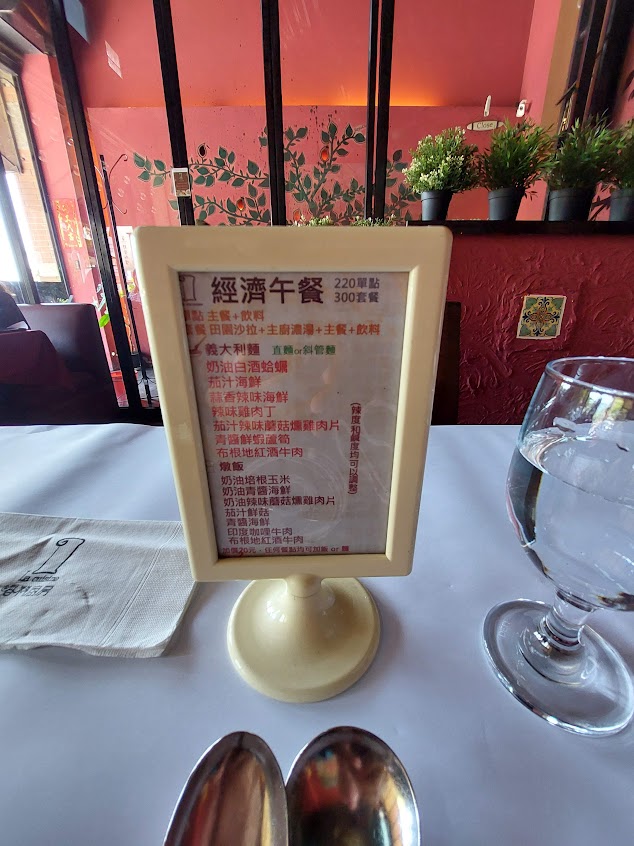 Close
經濟午餐 220單點
300套餐
單點 主餐+飲料
套餐 田園沙拉+主廚濃湯+主餐+飲料
義大利麵 直麵or斜管麵
奶油白酒蛤蠣
茄汁海鮮
蒜香辣味海鮮
辣味雞肉丁
茄汁辣味蘑菇燻雞肉片
青醬鮮蝦蘆筍
布根地紅酒牛肉
(辣度和鹹度均可以調整)
燉飯
奶油培根玉米
奶油青醬海鮮
奶油辣味蘑菇燻雞肉片
茄汁鮮菇
青醬海鮮
印度咖哩牛肉
布根地紅酒牛肉
加價20元,任何餐點均可加飯 or 麵
La cuisine